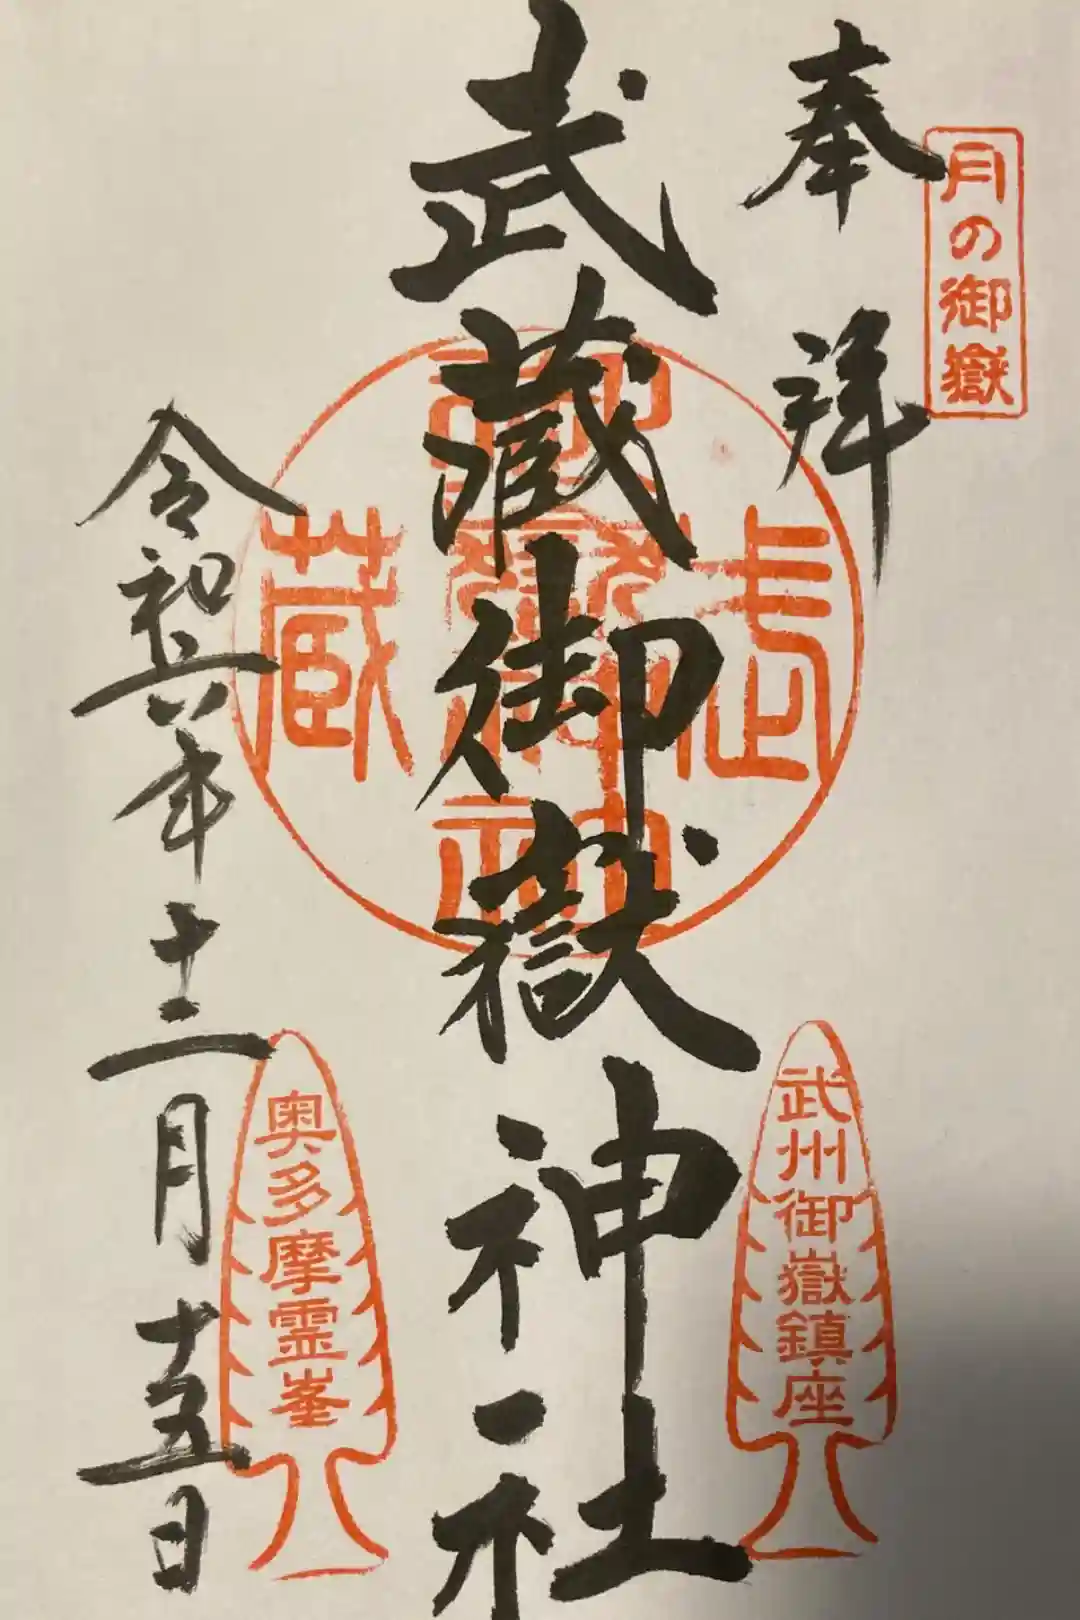 月の御嶽
奉拝
武蔵御嶽神社
武蔵
武州御嶽鎮座
令和六年十二月十五日
奥多摩霊峯